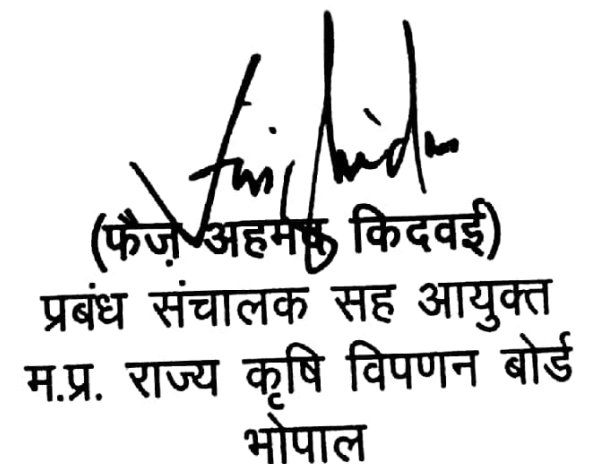 (फैज़ अहमद किदवई)
प्रबंध संचालक सह आयुक्त
म.प्र. राज्य कृषि विपणन बोर्ड
भोपाल